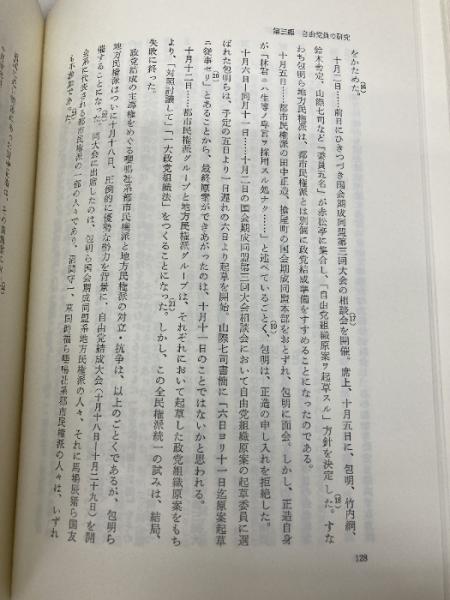 第三編 自由党員の研究
をかためた。(16)
十月二日……前日にひきつづき国会期成同盟第三回大会の相談会を開催。(17)席上、十月五日に、包明、竹内綱、
鈴木舎定、山際七司など「委員五名」が赤松亭に集合し、「自由党組織原案ヲ起草スル」方針を決定した。(18)すな
わち包明ら地方民権派は、都市民権派とは別個に政党結成準備をすすめることになったのである。
十月五日……都市民権派の田中正造、槍屋町の国会期成同盟本部をおとずれ、包明に面会。しかし、正造自身
が「抹若ハ生等ノ専言ヲ採用スル処ナク……」と述べているごとく、(19)包明は、正造の申し入れを拒絶した。
十月六日―同月十一日……十月二日の国会期成同盟第三回大会相談会において自由党組織原案の起草委員に選
ばれた包明らは、予定の五日より一日遅れの六日より起草を開始。山際七司書簡に「六日ヨリ十一日迄原案起草
ニ従事セリ」(20)とあることから、最終原案ができあがったのは、十月十一日のことではないかと思われる。
十月十二日……都市民権派グループと地方民権派グループは、それぞれにおいて起草した政党組織原案をもち
より、「対照討議して」「一大政党組織法」をつくることになった。(21)しかし、この全民権派統一の試みは、結局、
失敗に終った。
政党結成の主導権をめぐる嚶鳴社系都市民権派と地方民権派の対立・抗争は、以上のごとくであるが、包明ら
地方民権派はついに十月十八日、圧倒的に優勢な勢力を背景に、自由党結成大会(十月十八日―十月二十九日)を開
催することになった。同大会に出席したのは、包明ら国会期成同盟系地方民権派の人々、それに馬場辰猪ら国友
会系に代表される都市民権派の一部の人々であり、沼間守一、末広重恭ら嚶鳴社系都市民権派の人々は、いずれ
も不参加であった。
128